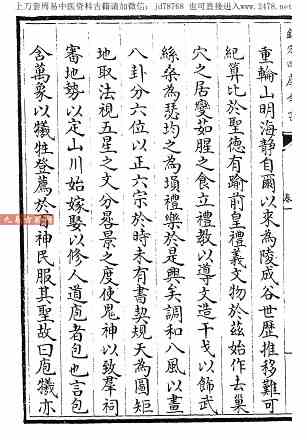 上万套周易中医资料古籍请加微信：jd78768 也可直接进入www.2478.net
重輪山明海靜自爾以來為陵成谷世歷推移難可
紀算比於聖德有踰前皇禮義文物於茲始作去巢
穴之居變茹腥之食立禮教以導文造干戈以飾武
絲桑為瑟均之為塤禮樂於是興矣調和八風以畫
八卦分六位以正六宗於時未有書契規天為圖矩
地取法視五星之文分晷景之度使鬼神以致羣祠
審地勢以定山川始嫁娶以修人道庖者包也言包
含萬象以犧牲登薦於百神民服其聖故曰庖犧亦